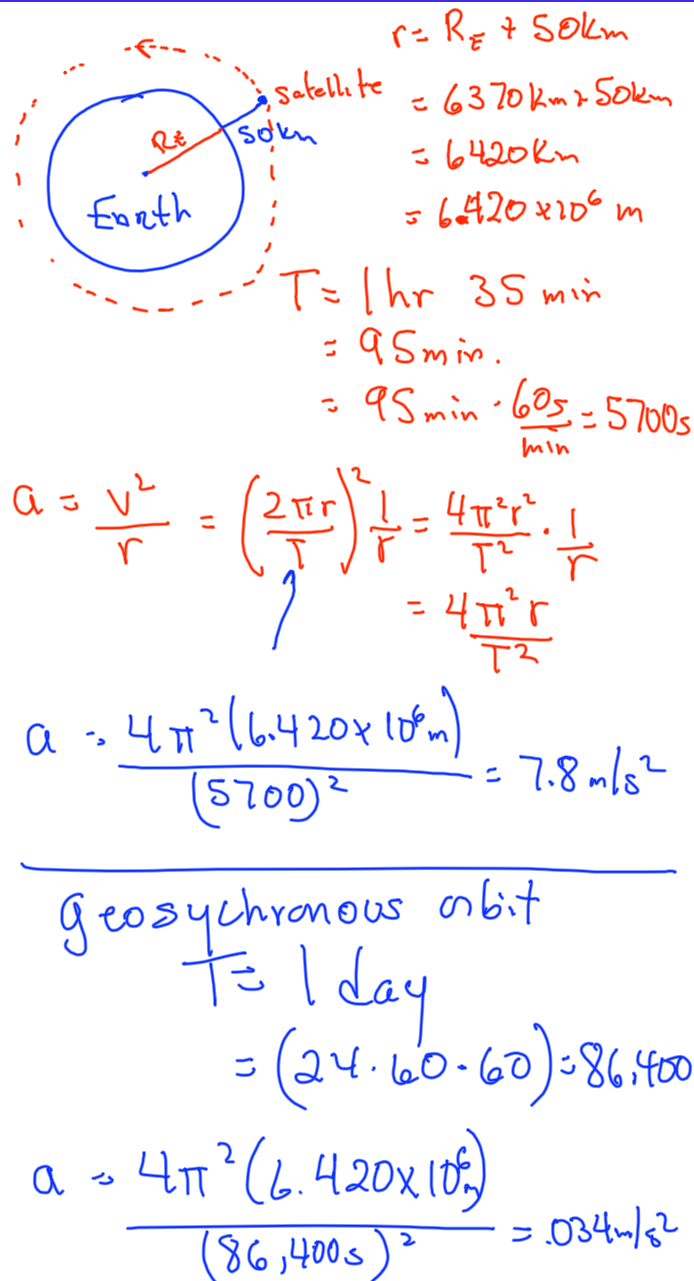 r = R_E + 50km
satellite
= 6370km + 50km
R_E
50km
= 6420km
Earth
= 6.420 x 10⁶ m
T = 1 hr 35 min
= 95 min.
= 95 min · 60s/min = 5700s
a = v²/r = (2πr/T)² 1/r = 4π²r²/T² · 1/r
= 4π²r/T²
a = 4π²(6.420 x 10⁶ m)/(5700)² = 7.8 m/s²
geosychronous orbit
T = 1 day
= (24·60·60) = 86,400
a = 4π²(6.420 x 10⁶ m)/(86,400s)² = .034 m/s²